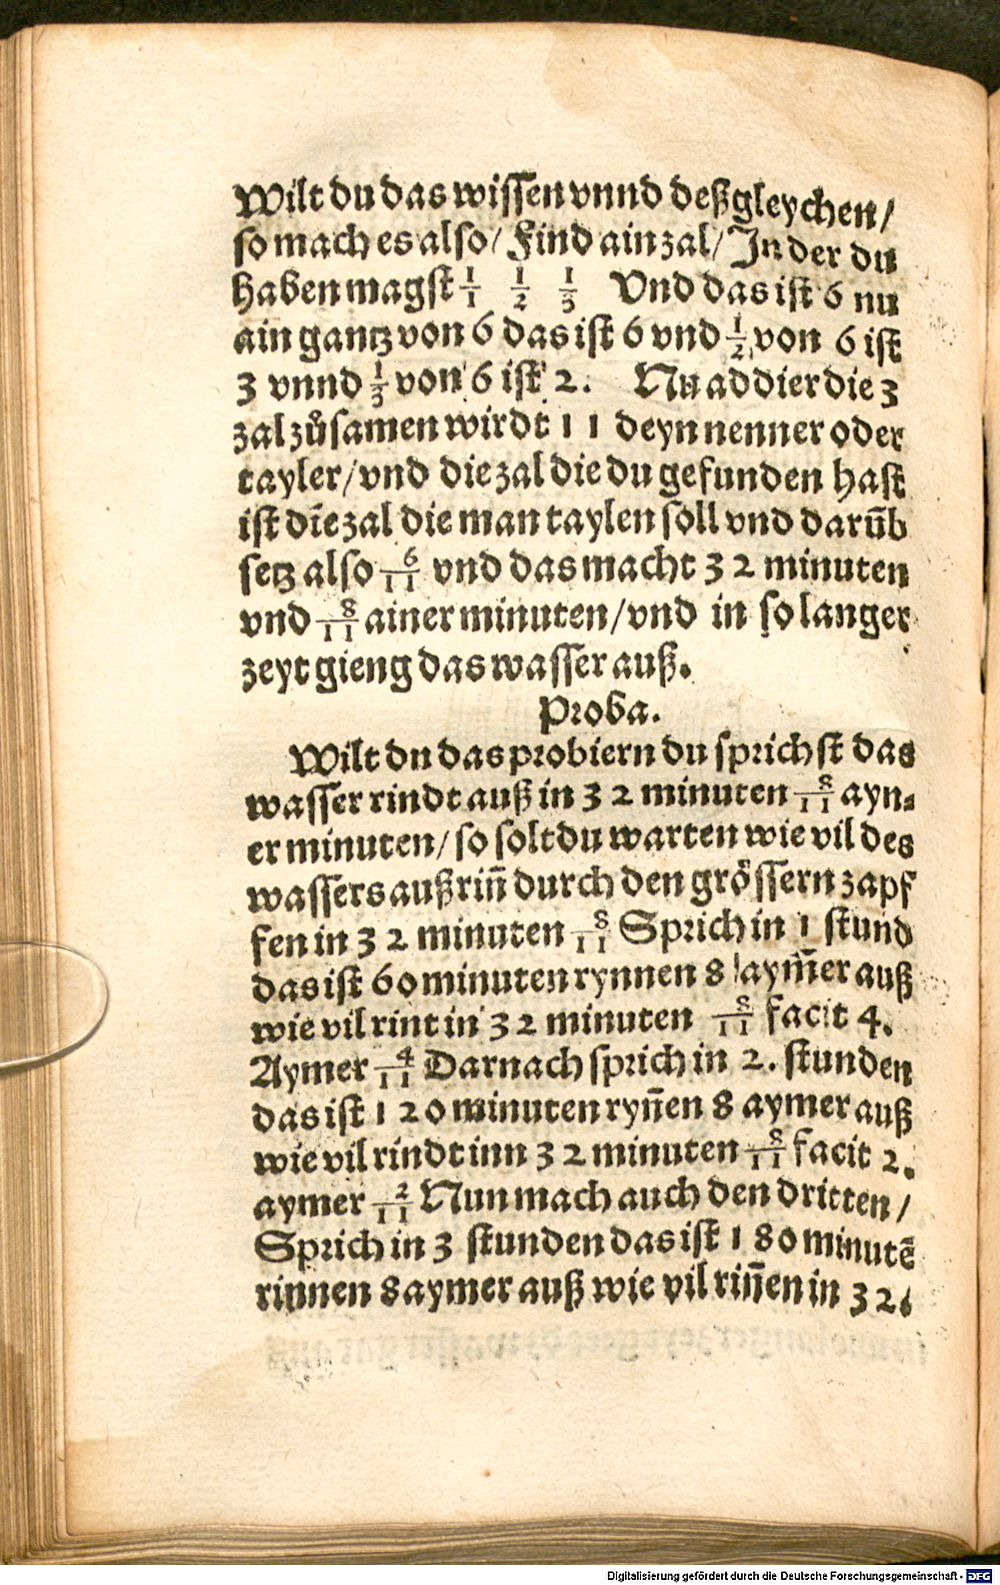 Wilt du das wissen vnnd deßgleychen/
so mach es also/ Find ain zal/ In der du
haben magst 1/1 1/2 1/3 Vnd das ist 6 nu
ain gantz von 6 das ist 6 vnd 1/2 von 6 ist
3 vnnd 1/3 von 6 ist 2. Nu addier die 3
zal zůsamen wirdt 11 deyn nenner oder
tayler/ vnd die zal die du gefunden hast
ist die zal die man taylen soll vnd darüb
setz also 6/11 vnd das macht 32 minuten
vnd 8/11 ainer minuten/ vnd in so langer
zeyt gieng das wasser auß.
Proba.
Wilt du das probiern du sprichst das
wasser rindt auß in 32 minuten 8/11 ayn⸗
er minuten/ so solt du warten wie vil des
wassers auß rin̄ durch den grössern zapf
fen in 32 minuten 8/11 Sprich in 1 stund
das ist 60 minuten rynnen 8 aym̄er auß
wie vil rint in 32 minuten 8/11 facit 4.
Aymer 4/11 Darnach sprich in 2. stunden
das ist 120 minuten ryn̄en 8 aymer auß
wie vil rindt inn 32 minuten 8/11 facit 2.
aymer 2/11 Nun mach auch den dritten/
Sprich in 3 stunden das ist 180 minutē
rinnen 8 aymer auß wie vil rin̄en in 32.
Digitalisierung gefördert durch die Deutsche Forschungsgemeinschaft - DFG